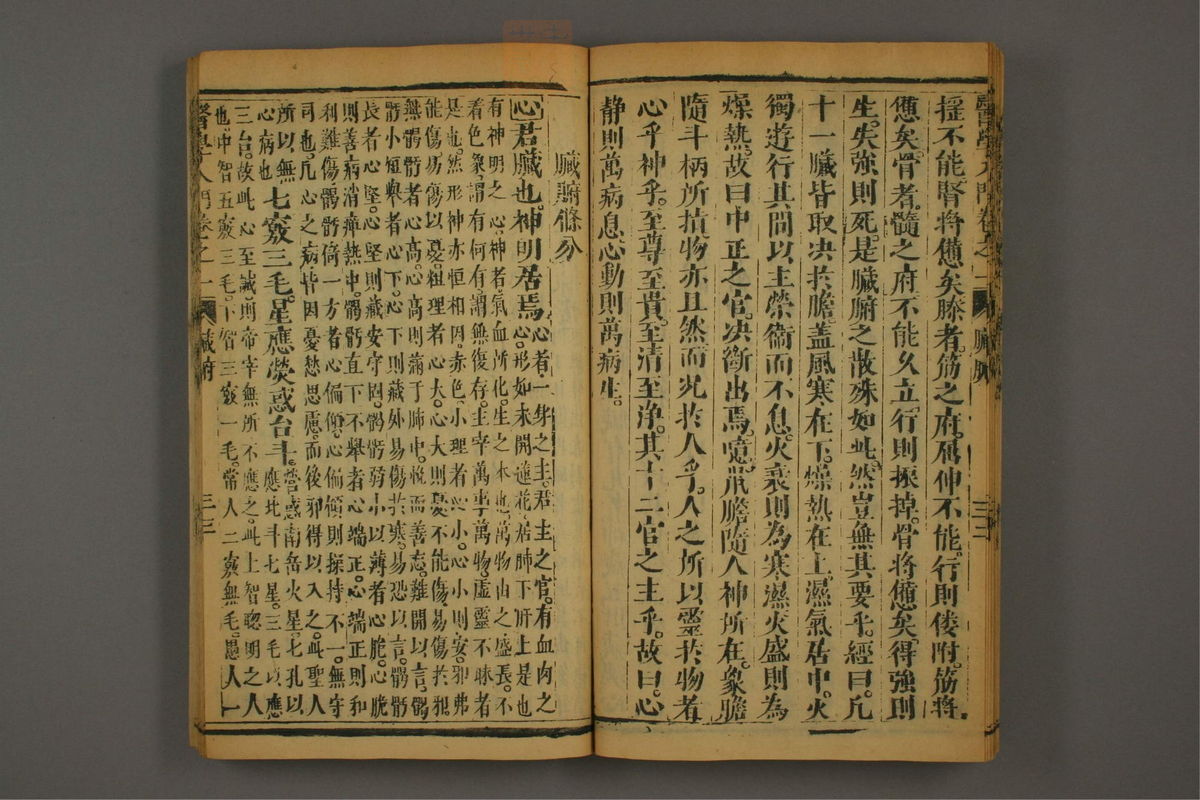 搖不能腎將憊矣膝者筋之府屈伸不能行則僂附筋將
憊矣骨者髓之府不能久立行則振掉骨將憊矣得強則
生失強則死是臟腑之散殊如此然豈無其要乎經曰凡
十一臟皆取决於膽蓋風寒在下燥熱在上濕氣居中火
獨遊行其間以主榮衞而不息火衰則為寒濕火盛則為
燥熱故曰中正之官决斷出焉噫鼠膽隨人神所在象膽
隨斗柄所指物亦且然而况於人乎人之所以靈於物者
心乎神乎至尊至貴至清至淨其十二官之主乎故曰心
静則萬病息心動則萬病生
臟腑條分
心君臟也神明居焉心者一身之主君主之官有血肉之
心形如未開蓮花居肺下肝上是也
有神明之心神者氣血所化生之本也萬物由之盛長不
看色象謂有何有謂無復存主宰萬事萬物虛靈不昧者
是也然形神亦恒相因赤色小理者心小心小則安邪弗
能傷易傷以憂粗理者心大心大則憂不能傷易傷於邪
無𩩲骬者心高心高則滿于肺中悗而善忘難開以言𩩲
骬小短舉者心下心下則藏外易傷於寒易恐以言𩩲骬
長者心堅心堅則藏安守固𩩲骬弱小以薄者心脆心脆
則善病消癉熱中𩩲骬直下不舉者心端正心端正則和
利難傷𩩲骬倚一方者心偏傾心偏傾則操持不一無守
司也凡心之病皆因憂愁思慮而後邪得以入之此聖人
所以無心病也七竅三毛星應熒惑台斗熒惑南岳火星七孔以
應北斗七星三毛以應
三台故此心至誠則帝宰無所不應之此上智聰明之人
也中智五竅三毛下智三竅一毛常人二竅無毛愚人一
醫學入門卷之一 臟腑 三三